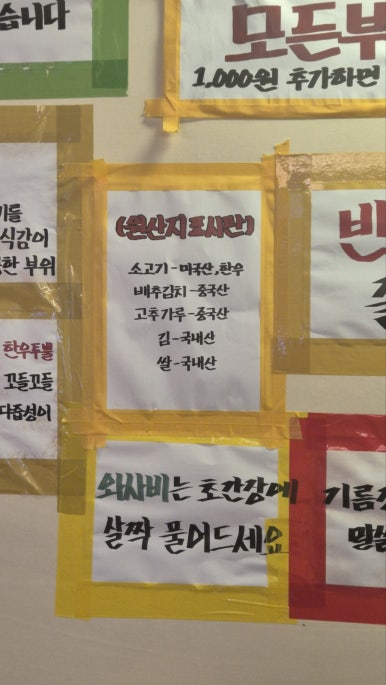 습니다
모든부
1,000원 추가하면
기를
식감이
한 부위
(원산지 표시판)
소고기-미국산,한우
배추김치-중국산
고추가루-중국산
김-국내산
쌀-국내산
한우투뿔
꼬들꼬들
다즙성이
와사비는 초간장에
살짝 풀어드세요